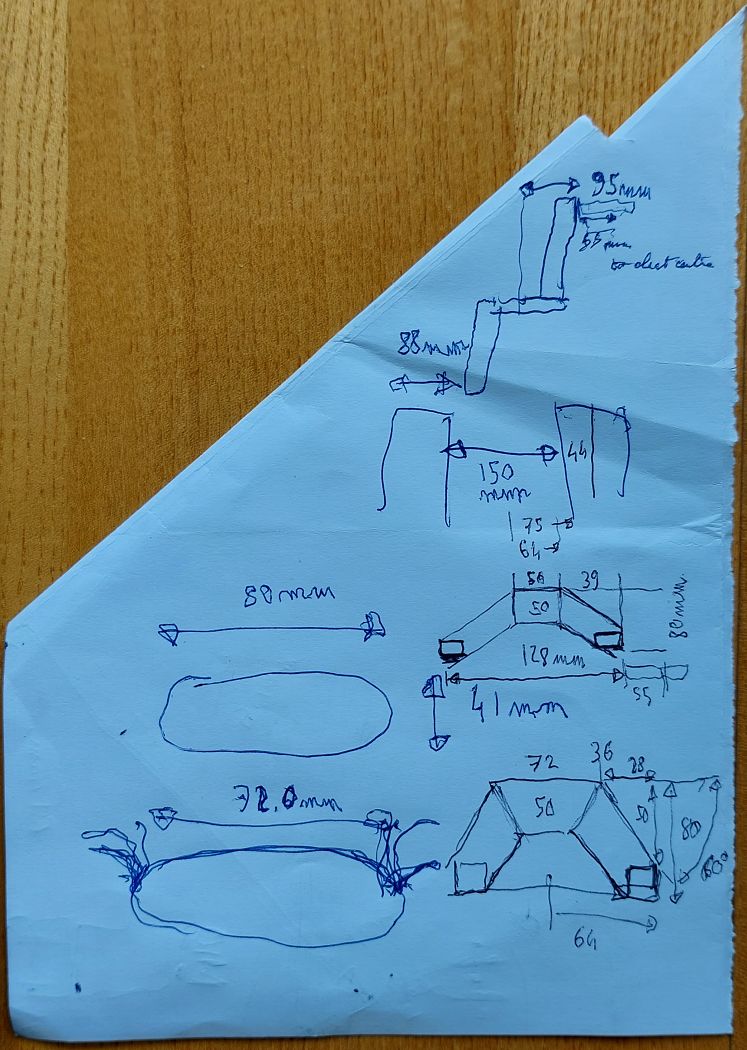 95mm
55mm
to duct centre
88mm
44
150
mm
75
64
50 39
50
80mm
88mm
128mm
55
41mm
36
72 28
72.0mm
50
50
80
60°
64